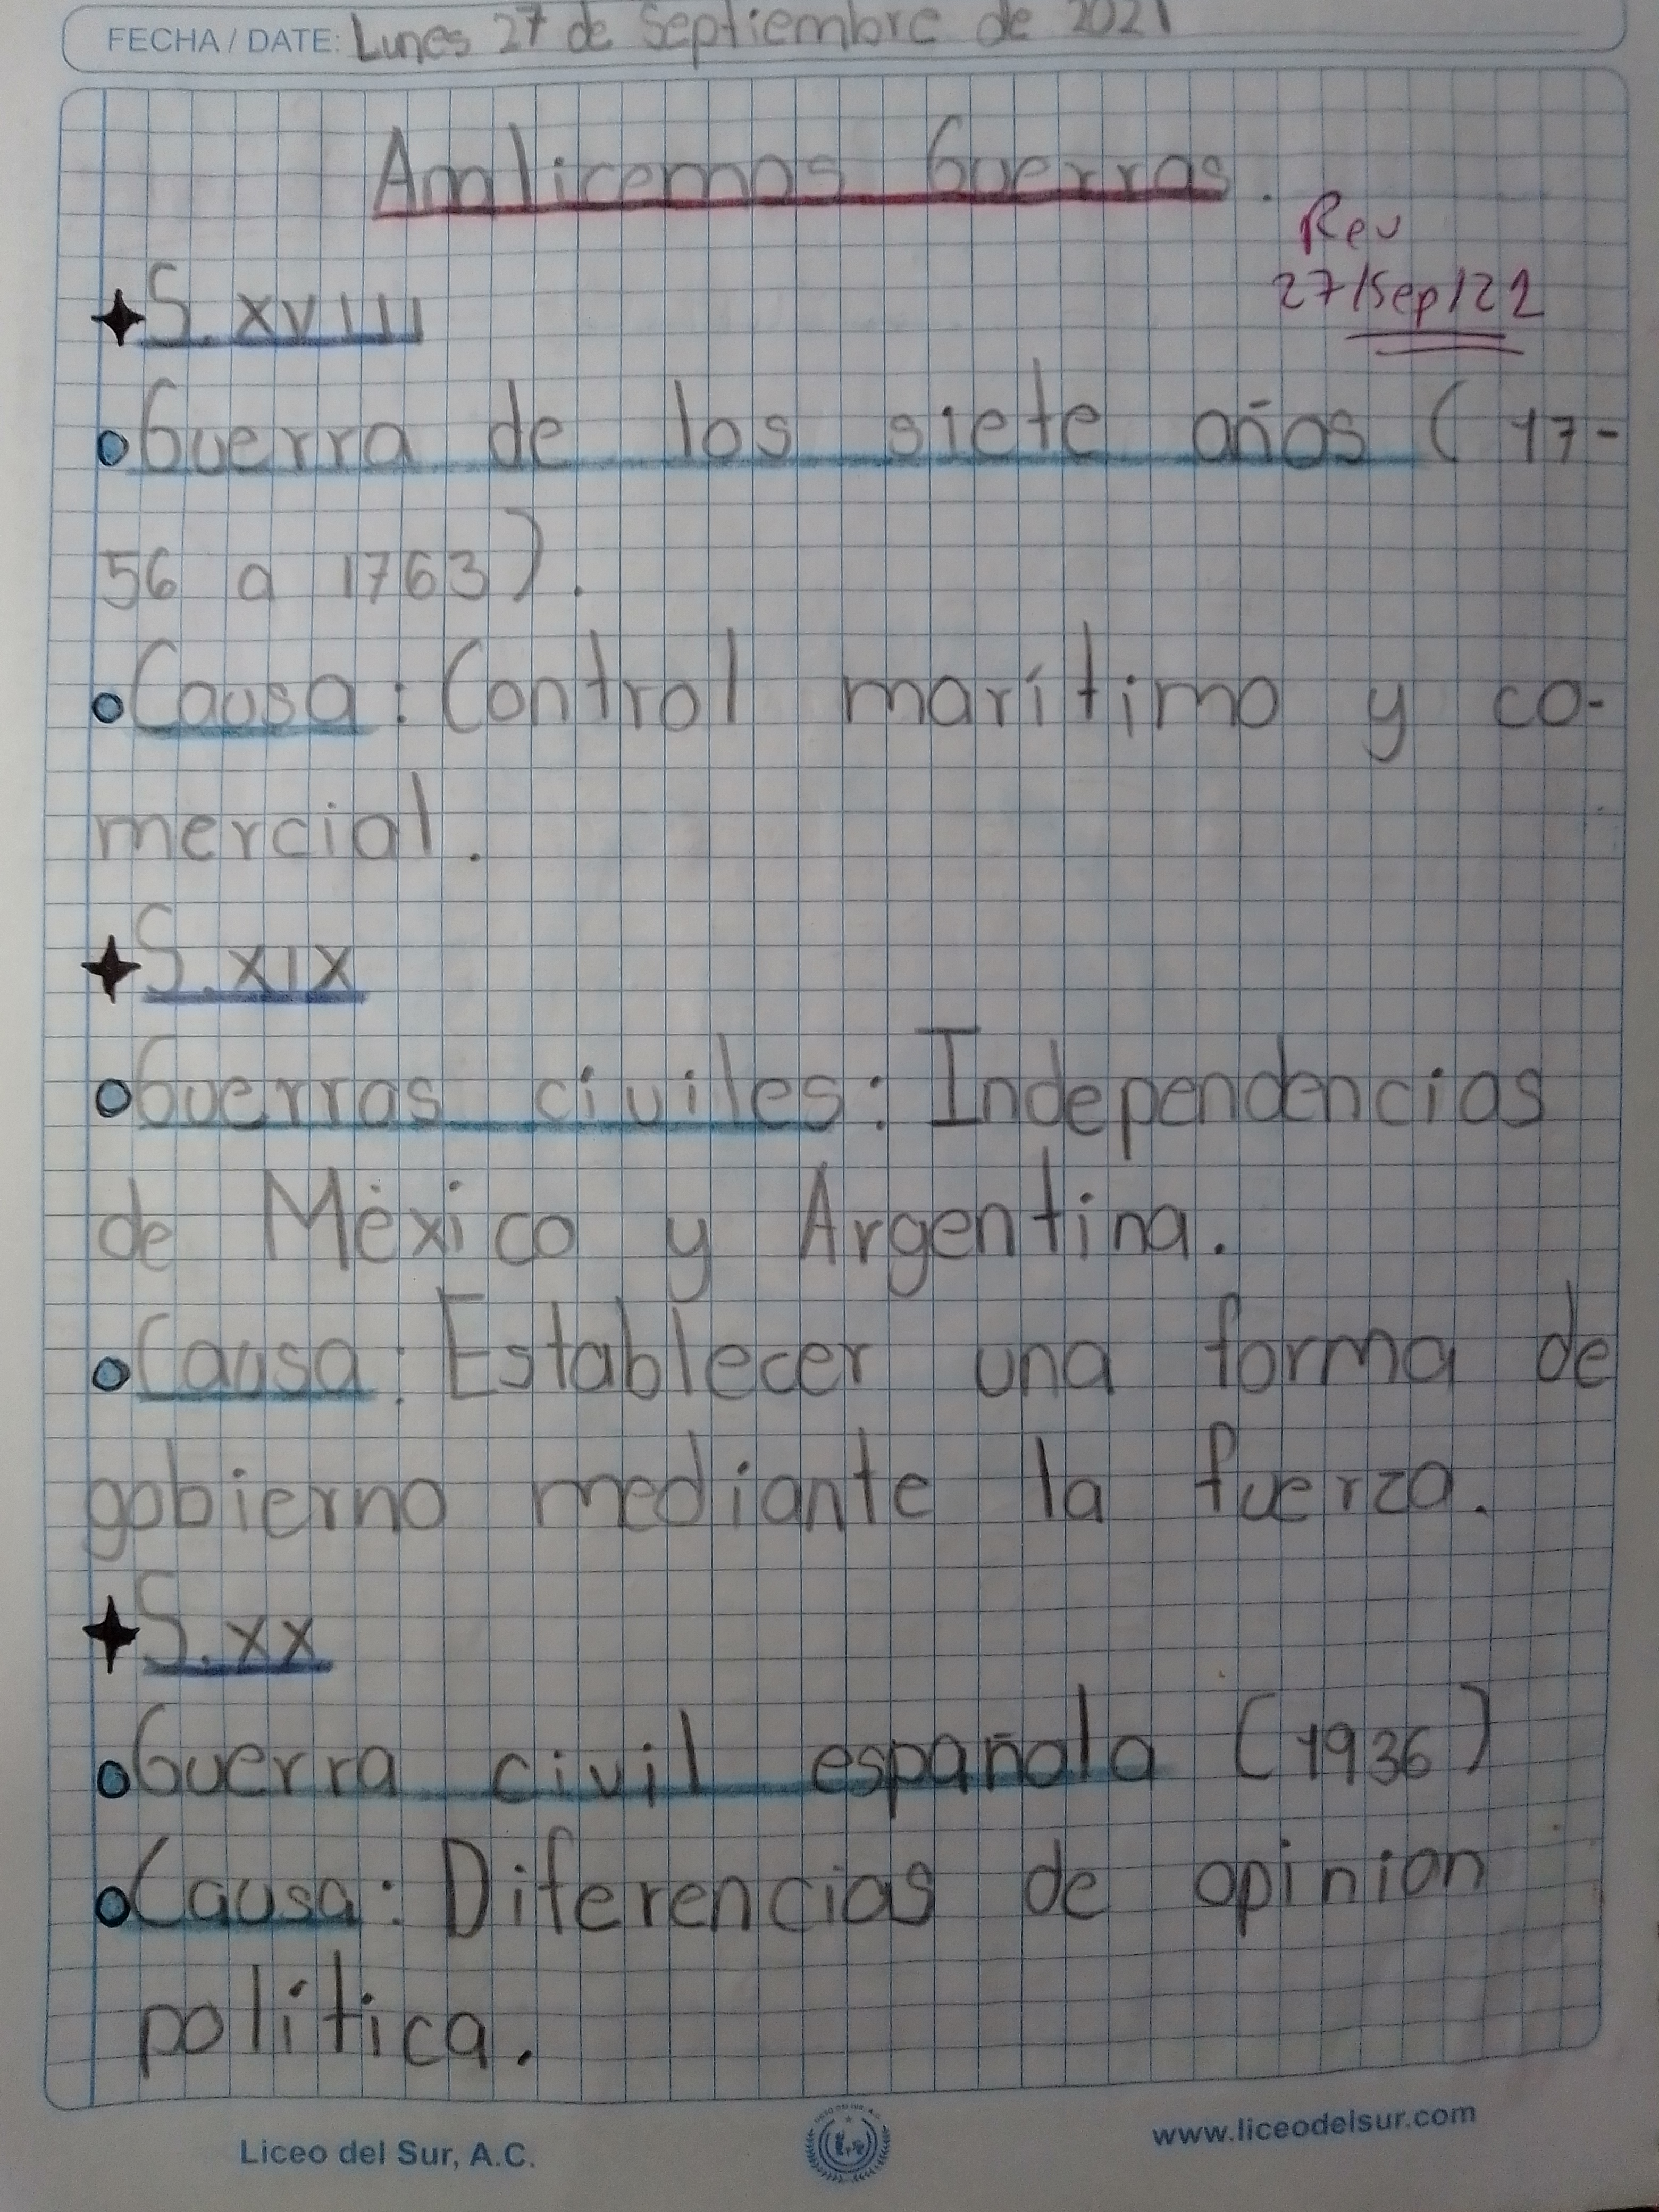 FECHA / DATE: Lunes 27 de Septiembre de 2021
Analicemos Guerras.
Rev
27/Sep/21
S. XVIII
Guerra de los siete años (17-
56 a 1763).
Causa: Control marítimo y co-
mercial.
S. XIX
Guerras civiles: Independencias
de México y Argentina.
Causa: Establecer una forma de
gobierno mediante la fuerza.
S. XX
Guerra civil española (1936)
Causa: Diferencias de opinion
política.
Liceo del Sur, A.C.
www.liceodelsur.com